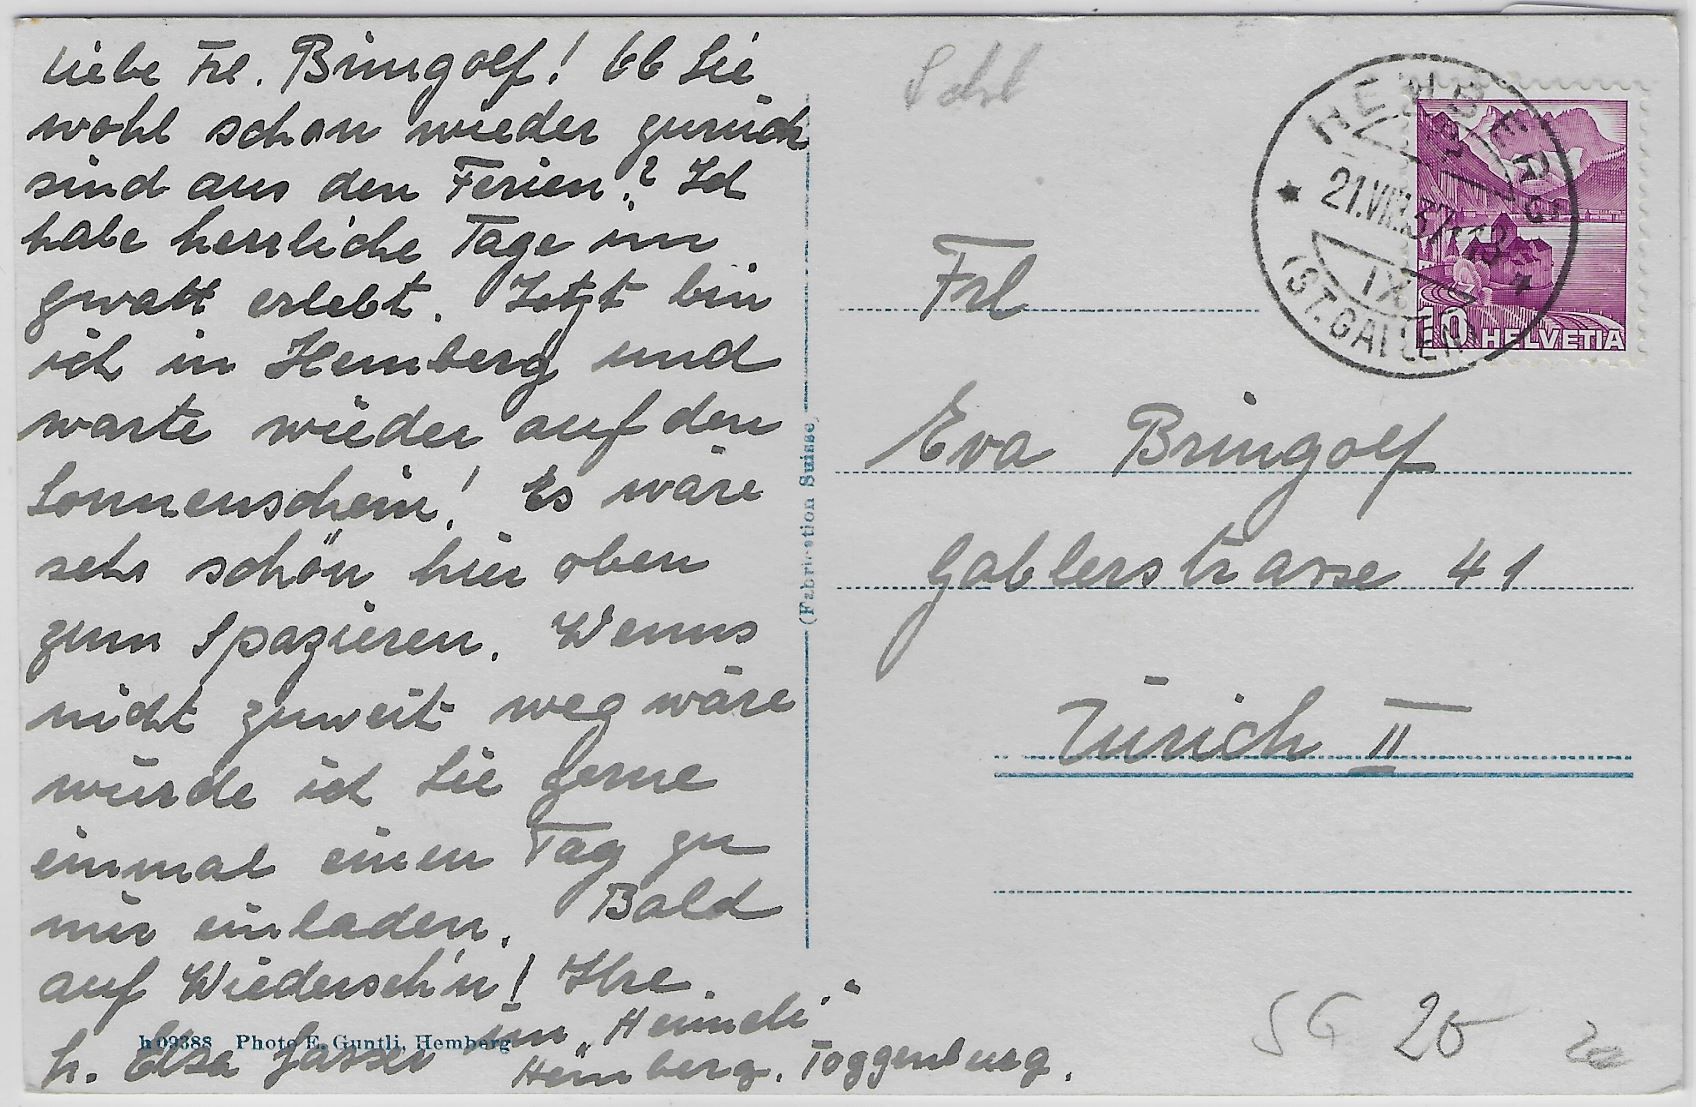 Liebe Frl. Bringolf! Ob Sie
wohl schon wieder zurück
sind aus den Ferien? Ich
habe herrliche Tage im
gwatt erlebt. Jetzt bin
ich in Hemberg und
warte wieder auf den
Sonnenschein! Es wäre
sehr schön hier oben
zum Spazieren. Wenns
nicht zuweit weg wäre
würde ich Sie gerne
einmal einen Tag zu
mir einladen. Bald
auf Wiederseh'n! Ihre
h. Elsa im „Heimeli"
Hemberg. Toggenburg.
h 09388 Photo E. Guntli, Hemberg
(Fabrication Suisse)
HEMBERG
21.VIII.37
IX
(ST. GALLEN)
10 HELVETIA
Frl
Eva Bringolf
Gablerstrasse 41
Zürich II
SG 20